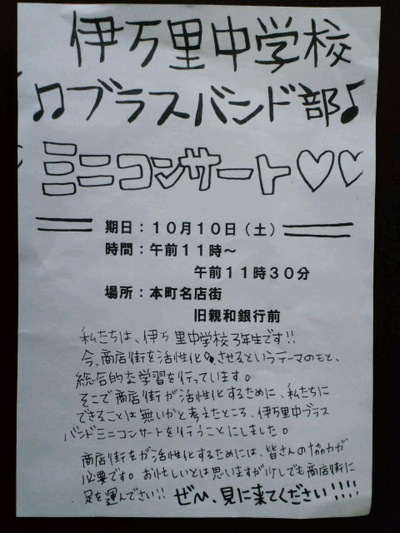 伊万里中学校
♫ブラスバンド部♪
ミニコンサート♡♡
期日：１０月１０日（土）
時間：午前１１時～
午前１１時３０分
場所：本町名店街
旧親和銀行前
私たちは、伊万里中学校3年生です!!
今、商店街を活性化させるというテーマのもと、
総合的な学習を行っています。
そこで商店街が活性化するために、私たちに
できることは無いかと考えたところ、伊万里中ブラス
バンドミニコンサートを行うことにしました。
商店街をが活性化するためには、皆さんの協力が
必要です。お忙しいとは思いますが少しでも商店街に
足を運んでさい!! ぜひ、見に来てください!!!!